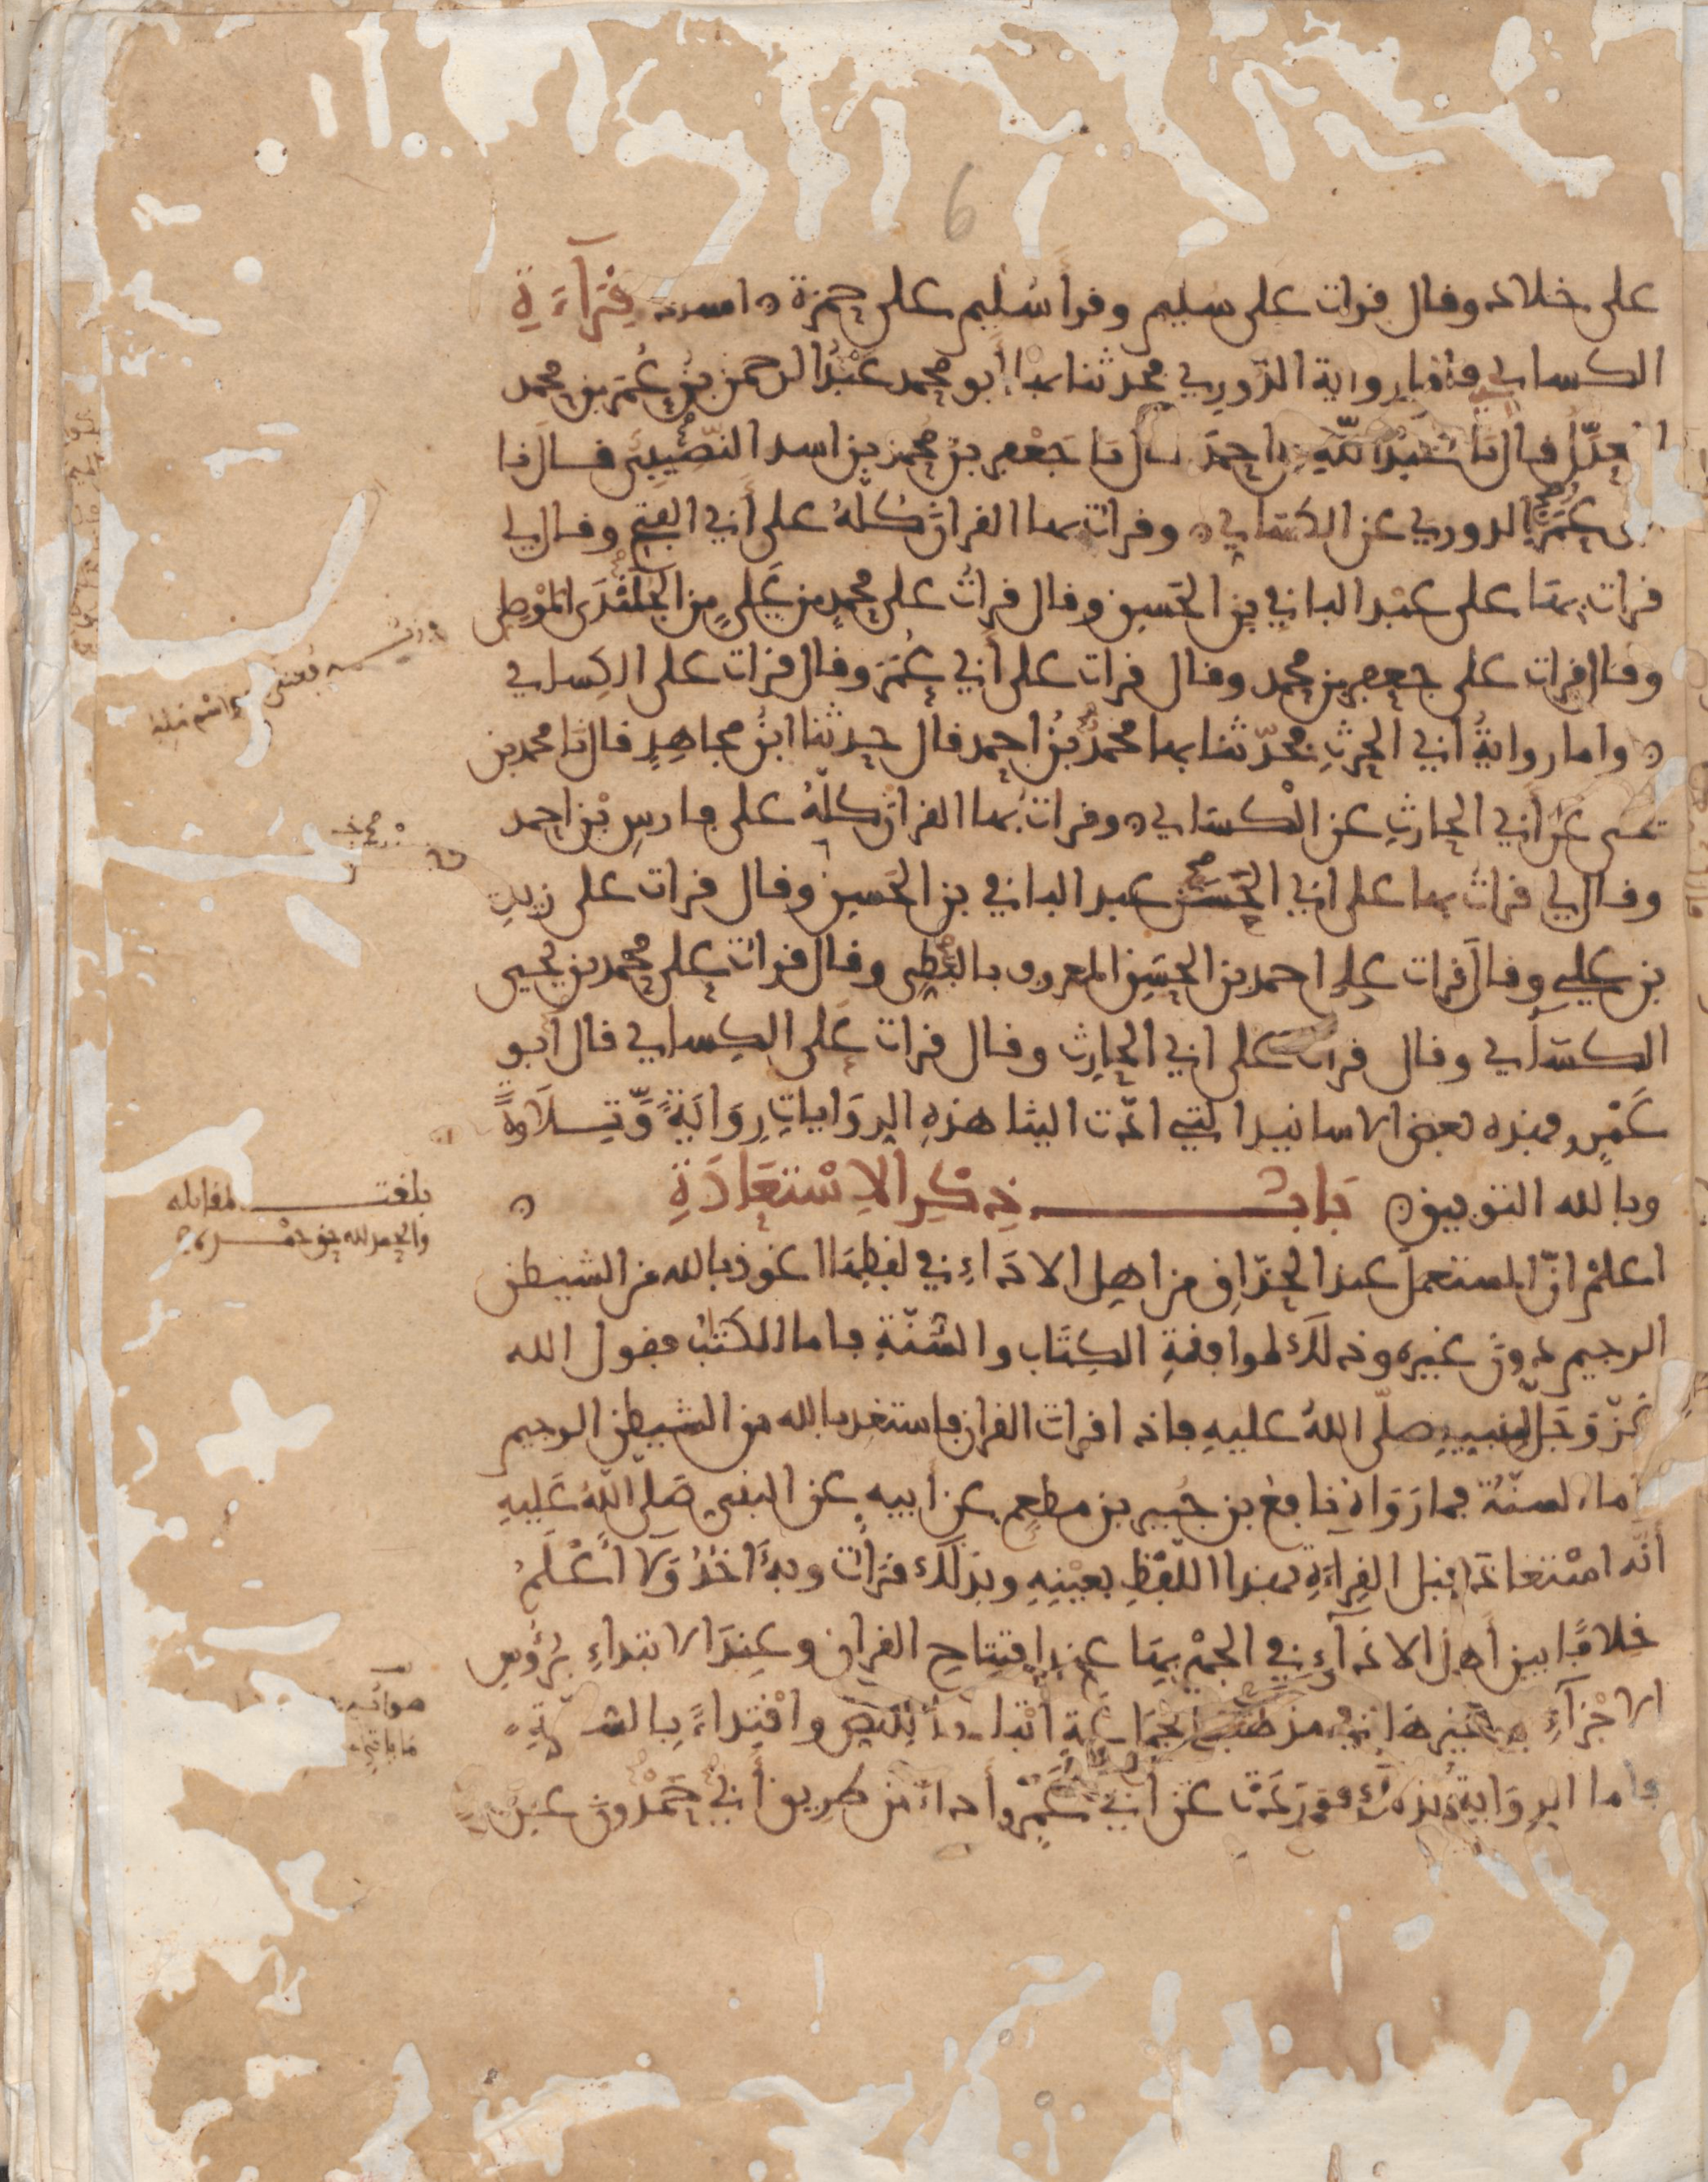 6
على خلاد وقال قرات على سليم وقرأ سُليم على حمزة ه اسناد قِرَآءَةِ
الكسايي فاما رواية الدّوريِ فحدثنا بها أبو محمد عَبْدُ الرحمن بنُ عُمَر بن محمد
المعدّل قال نا عَبْدُ اللّهِ بن احمدَ قال نا جَعْفر بنُ محمد بن اسد النّصِّيبي قال نا
ابو عُمَرَ الدوري عن الكسَايي ه وقرات بها القران كلّهُ على أبي الفتح وقال لي
قرات بهَا على عبْد الباقي بن الحَسن وقال قراتُ على محمدِ بن عَليٍ بن الجلَنْدَى المَوْصِلي
وقال قرات على جعفر بن محمد وقال قرات على أبي عُمَرَ وقال قرات على الكِسايي
ه واما روايةُ ابي الحرثِ فحدّثنا بها محمدُ بنُ احمد قال حدثنا ابنُ مجاهدٍ قال نا محمد بن
يحيى عن أبي الحارثِ عن الكسَايي ه وقرات بها القران كلّهُ على فارسِ بْن احمد
وقال لي قراتُ بها على ابي الحَسَن عبد الباقي بن الحَسن وقال قرات على زيدِ
بن علي وقال قرات على احمد بن الحسَن المعروف بالبَطّي وقال قراتُ على محمد بن يحيى
الكسَآيي وقال قرات على ابي الحارِث وقال قرات عَلى الكِسايي قال أبو
عَمْرٍو فهذه بعض الاسانيد التي ادّت الينا هذهِ الرِوَاياتِ رِوَايَةً وَّتِـلَاوَةً
وبالله التوفيق ه بَابُ ذِكْرِ الاِسْتعَاذَةِ ه
اعلمْ انّ المستعملَ عند الحذّاقِ من اهل الاداءِ في لفظِهَا اعوذ بالله من الشيطن
الرجيم دونَ غيره وذلك لموافقةِ الكِتَاب والسُّنّةِ فاما الكتبُ فقول الله
عزّ وجَلّ لنبيهِ صلّى اللهُ عليهِ فاذا قرات القران فاستعذ بالله من الشيطن الرجيم
واما السنّةُ فما رَوَاهُ نافعُ بن جُبير بن مطعِمٍ عن أبيه عن النبي صَلى اللّهُ عَليهِ
أنّه اسْتعاذ قبل القِراءةِ بهذا اللّفظِ بعَيْنِهِ وبذلك قرأتُ وبهِ آخذُ وَلَا أعْلَمُ
خلافًا بين أهل الادَآءِ في الجهْرِ بهَا عند افتتاحِ القران وعِندَ الابتداءِ برُؤُسِ
الاجْزآءِ وغيرها في مذهَب الجمَاعَةِ اتبَاعًا للنَّصِّ واقْتِداءً بِالسُّنّةِ ه
فاما الرِوَاية بذلك فوَرَدَتْ عن أبي عَمْرٍو أداءً من طريق أبي حَمْدُونَ عن
بلغت المقابله
والحمد لله حق حمده
صوابه